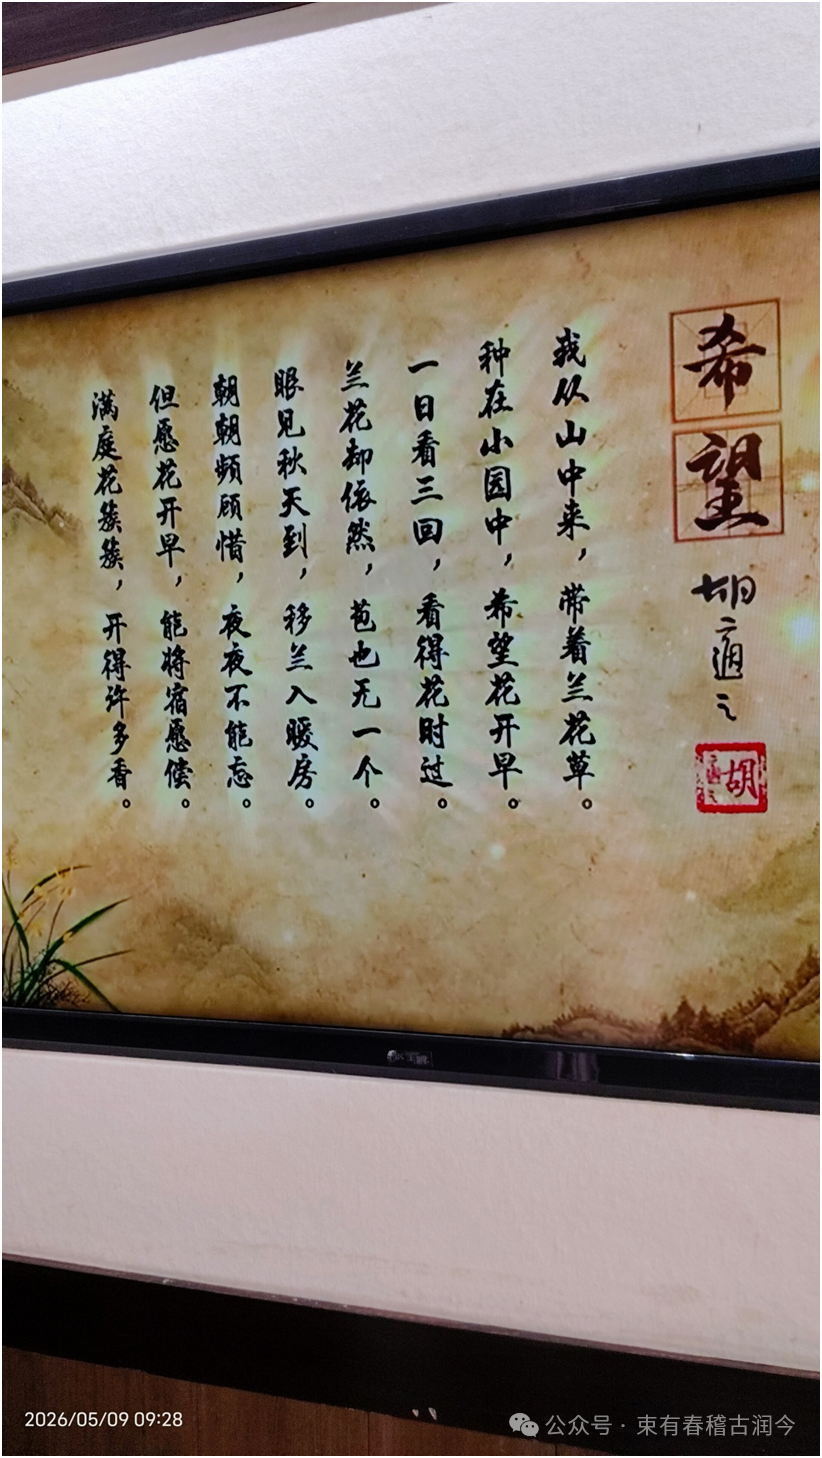 希望
胡适之
胡适之
我从山中来，带着兰花草。
种在小园中，希望花开早。
一日看三回，看得花时过。
兰花却依然，苞也无一个。
眼见秋天到，移兰入暖房。
朝朝频顾惜，夜夜不能忘。
但愿花开早，能将宿愿偿。
满庭花簇簇，开得许多香。
2026/05/09 09:28
公众号 · 束有春稽古润今